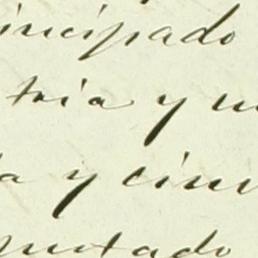 incipado
tria y u
a y cinu
putado